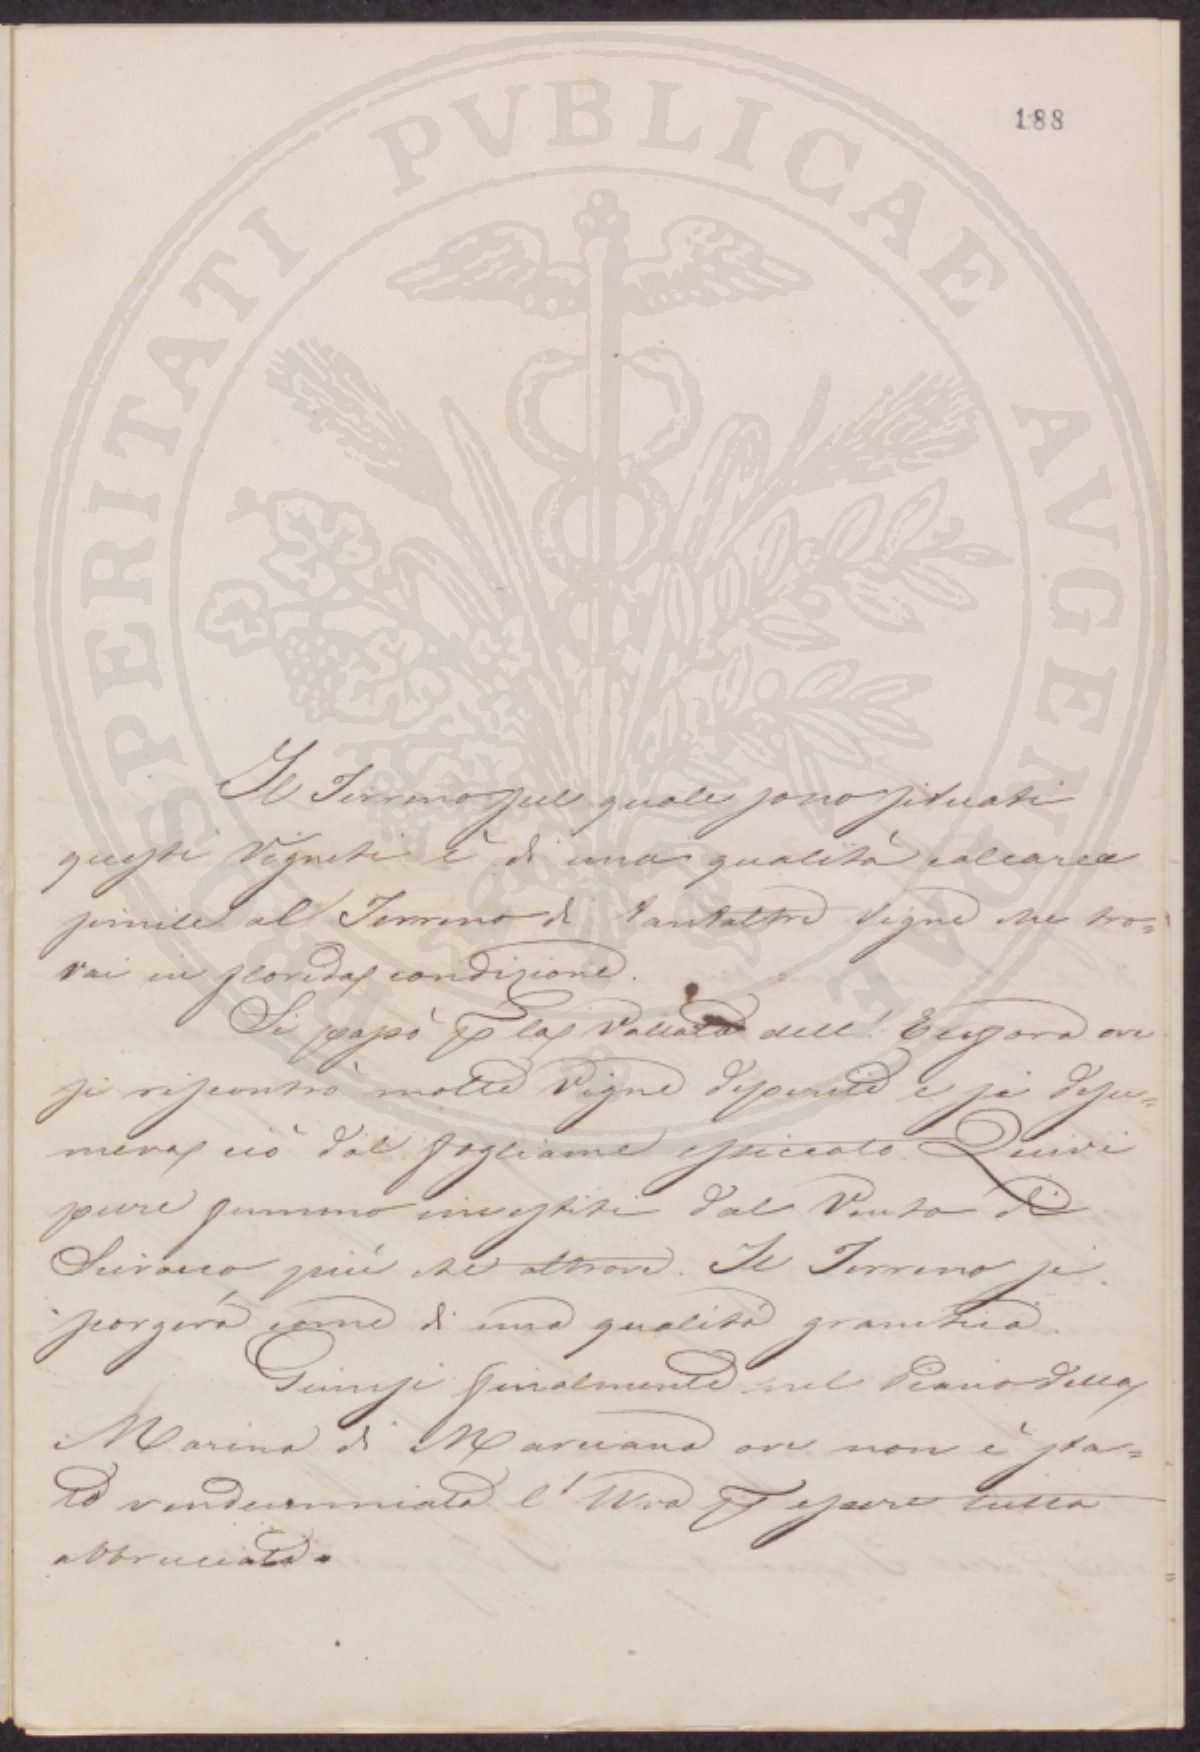 188
PROSPERITATI PVBLICAE AVGENDAE
Il Terreno sul quale sono situati
questi Vigneti è di una qualità calcarea
simile al Terreno di tant'altre Vigne che tro=
vai in florida condizione.
Si passò p la Vallata dell' ove
si riscontrò molte Vigne deperite e si desu=
meva ciò dal fogliame essiccato. Quivi
pure fummo investiti dal Vento di
Scirocco più che altrove. Il Terreno si
scorgerà come di una qualità granitica.
Giunsi finalmente nel Piano della
Marina di Marciana ove non è sta=
ta vendemmiata l' Uva p essere tutta
abbruciata.